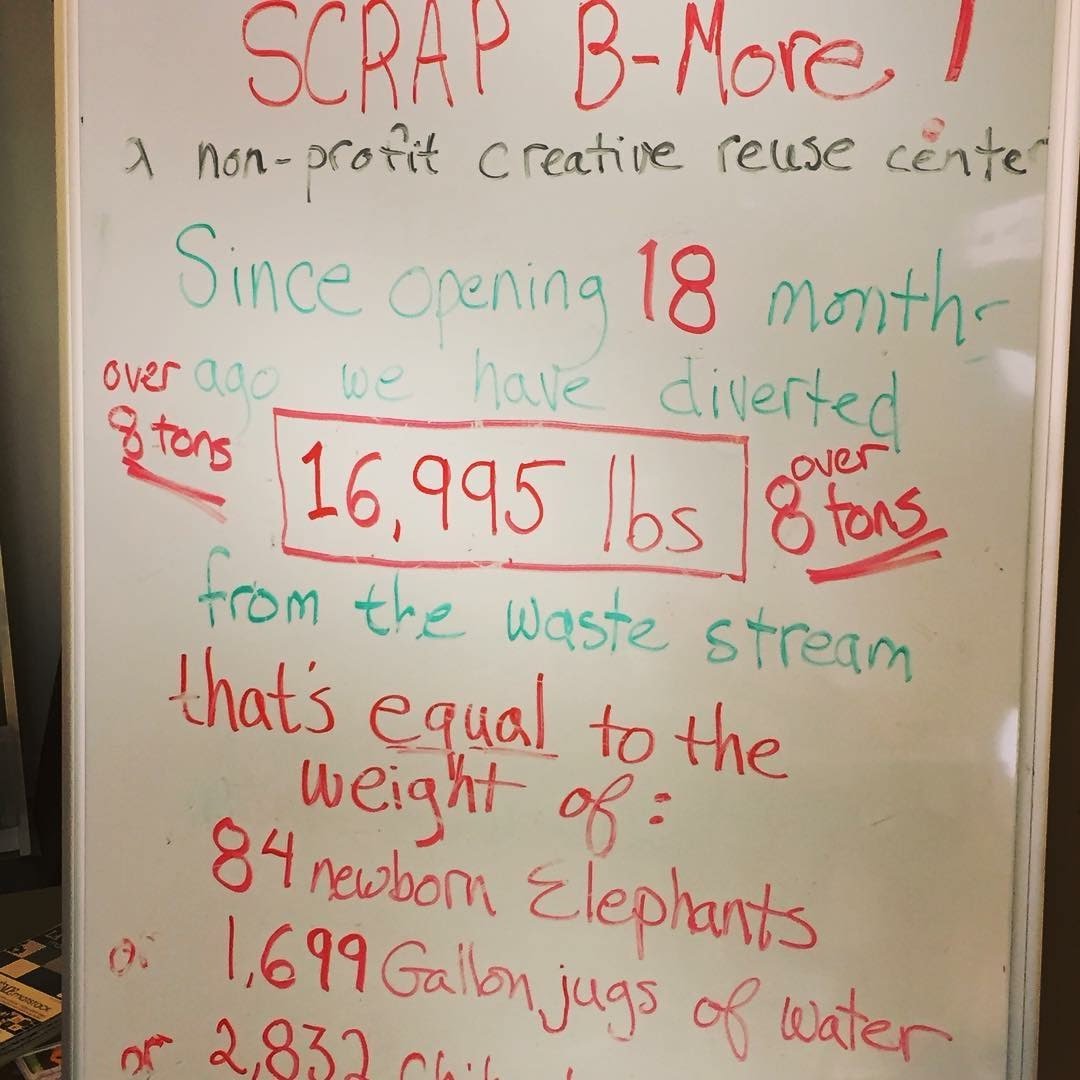 SCRAP B-More!
A non-profit creative reuse center
Since opening 18 months
over ago we have diverted
8 tons 16,995 lbs over 8 tons
from the waste stream
that's equal to the
weight of:
84 newborn Elephants
or 1,699 Gallon jugs of water
or 2,832